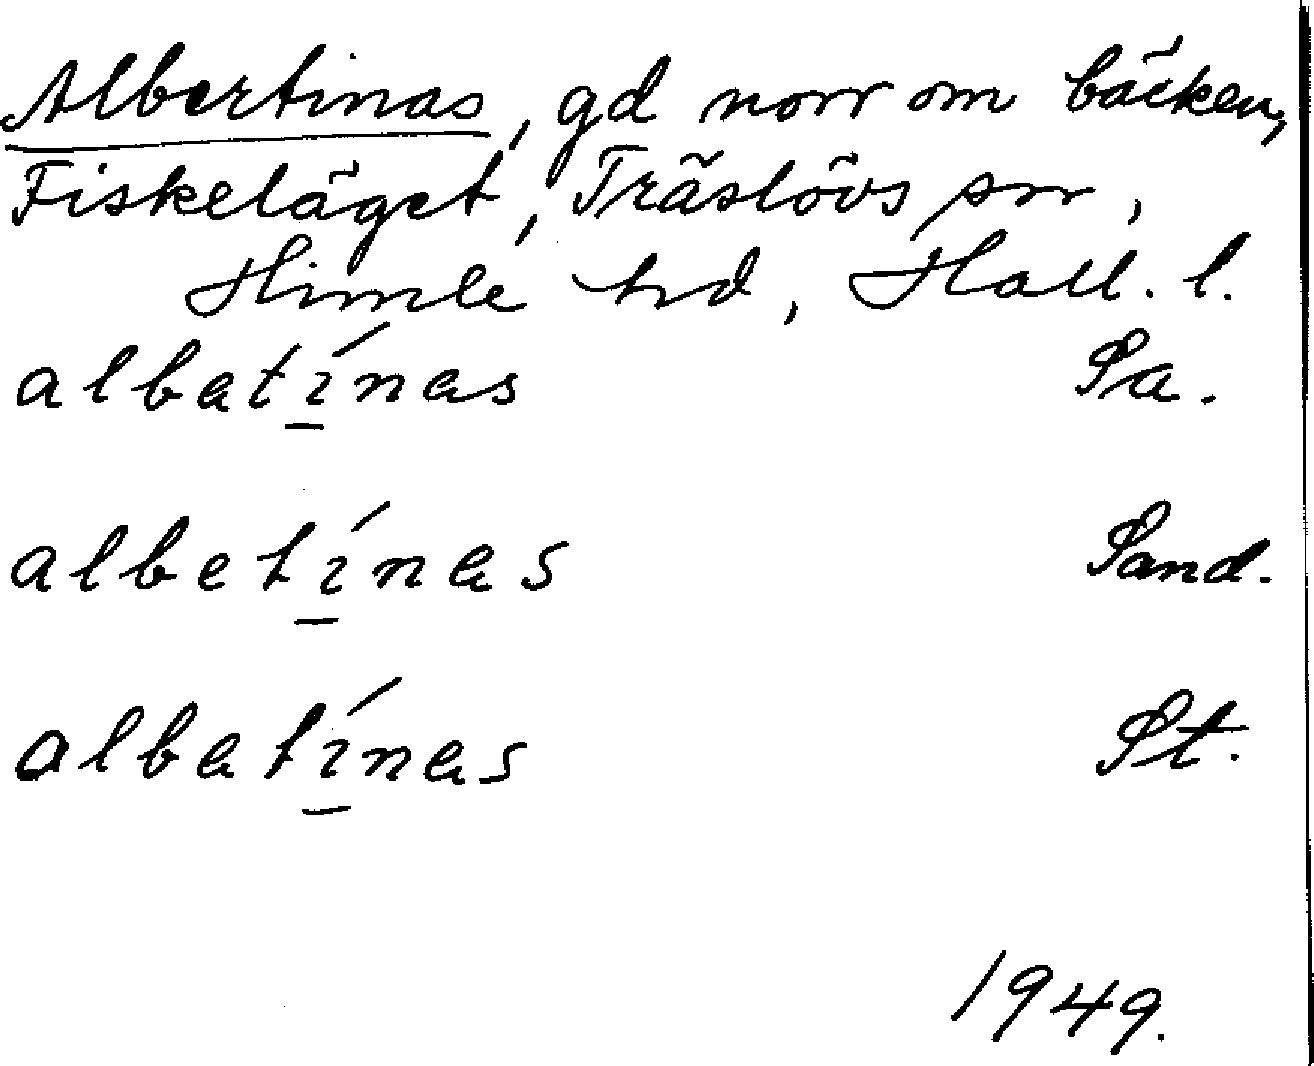 Albertinas, gd norr om bäcken,
Fiskeläget, Träslövs sn,
Himle hd, Hall. l.
albatínas Sa.
albetínas Sand.
albatínas St.
1949.